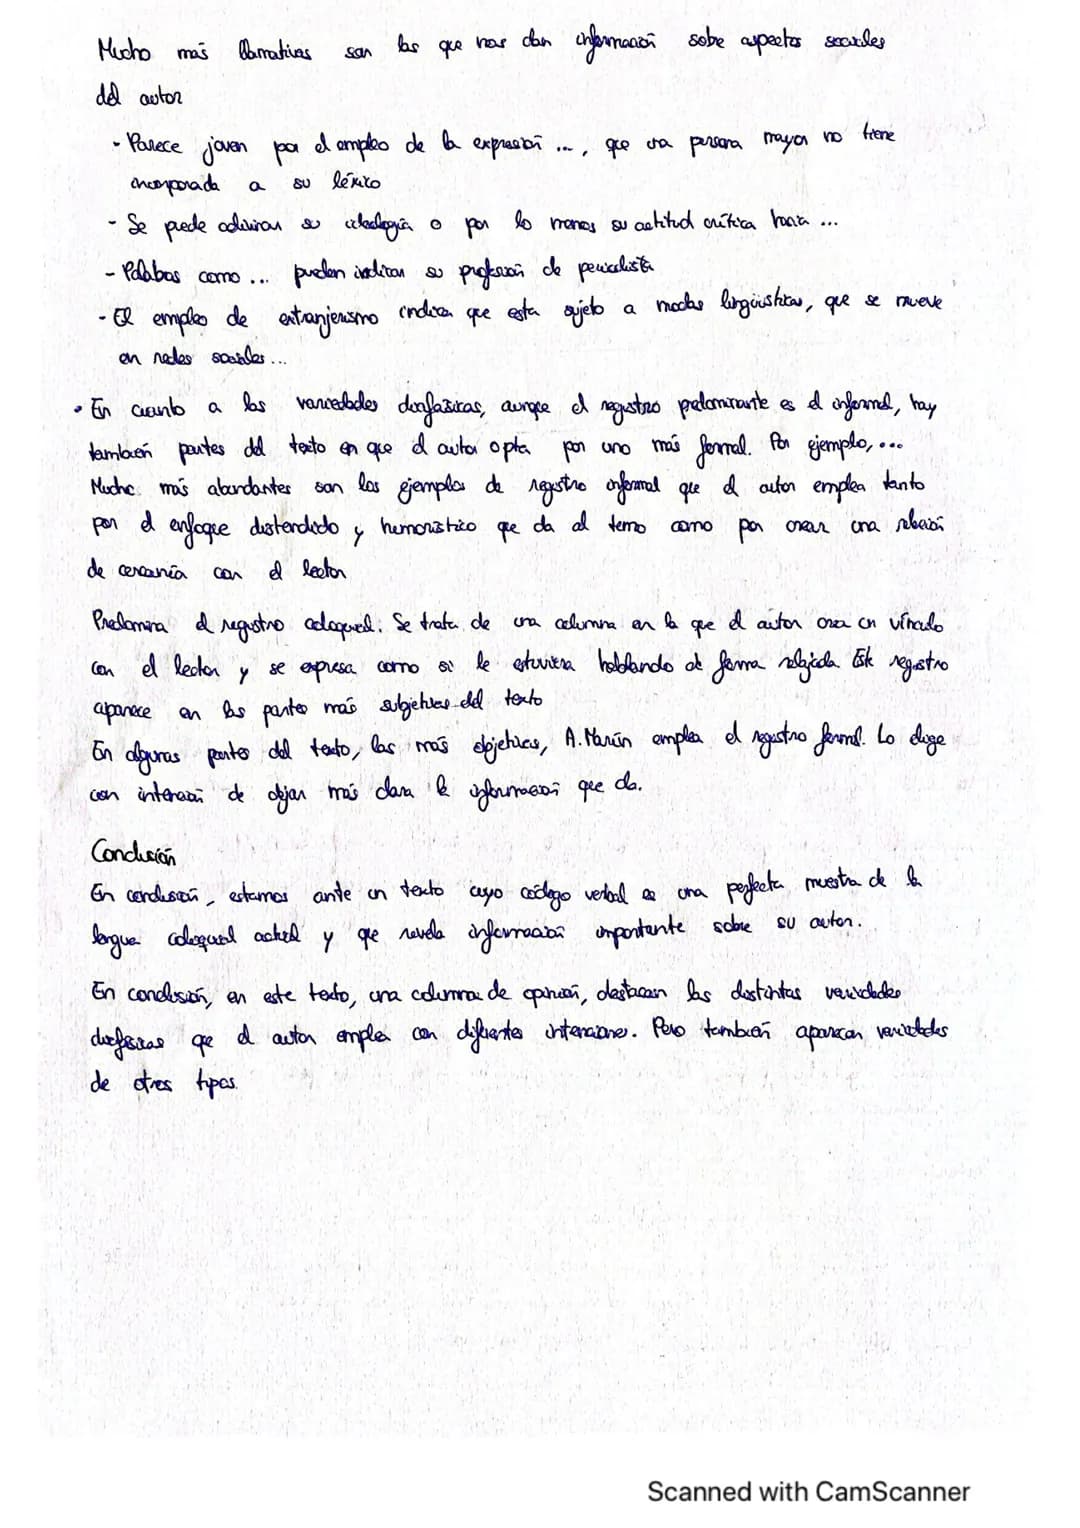 Mucho más llamativas son las que nos dan información sobre aspectos sociales
del autor
- Parece joven por el empleo de la expresión ..., que una persona mayor no tiene
incorporada a su léxico
- Se puede adivinar su ideología o por lo menos su actitud crítica hacia ...
- Palabas como ... pueden indicar su profesión de periodista
- El empleo de extranjerismo indica que esta sujeto a modas lingüísticas, que se mueve
en redes sociales ...
• En cuanto a las variedades diafásicas, aunque el registro predominante es el informal, hay
también partes del texto en que el autor opta por uno más formal. Por ejemplo, ...
Mucho más abundantes son los ejemplos de registro informal que el autor emplea tanto
por el enfoque distendido y humorístico que da al tema como por crear una relación
de cercanía con el lector
Predomina el registro coloquial. Se trata de una columna en la que el autor crea un vínculo
con el lector y se expresa como si le estuviera hablando de forma relajada Este registro
aparece en las partes más subjetivas del texto
En algunas partes del texto, las más objetivas, A. Marín emplea el registro formal. Lo elige
con intención de dejar más clara la información que da.
Conclusión
En conclusión, estamos ante un texto cuyo código verbal es una perfecta muestra de la
lengua coloquial actual y que revela información importante sobre su autor.
En conclusión, en este texto, una columna de opinión, destacan las distintas variedades
diafásicas que el autor emplea con diferentes intenciones. Pero también aparecen variedades
de otros tipos.
Scanned with CamScanner